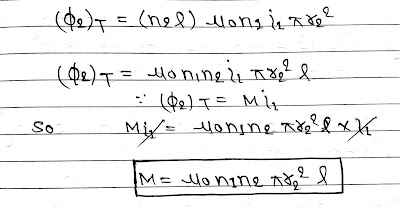 (ϕ₂)T = (n₂l) μ₀n₁i₁ πr₂²
(ϕ₂)T = μ₀n₁n₂i₁ πr₂² l
∵ (ϕ₂)T = Mi₁
So Mi₁ = μ₀n₁n₂ πr₂² l × i₁
M = μ₀n₁n₂ πr₂² l